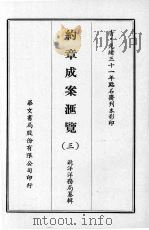 光緒三十一年點石齋刊本影印
約章成案匯覽
(三)
北洋洋務局纂輯
華文書局股份有限公司印行